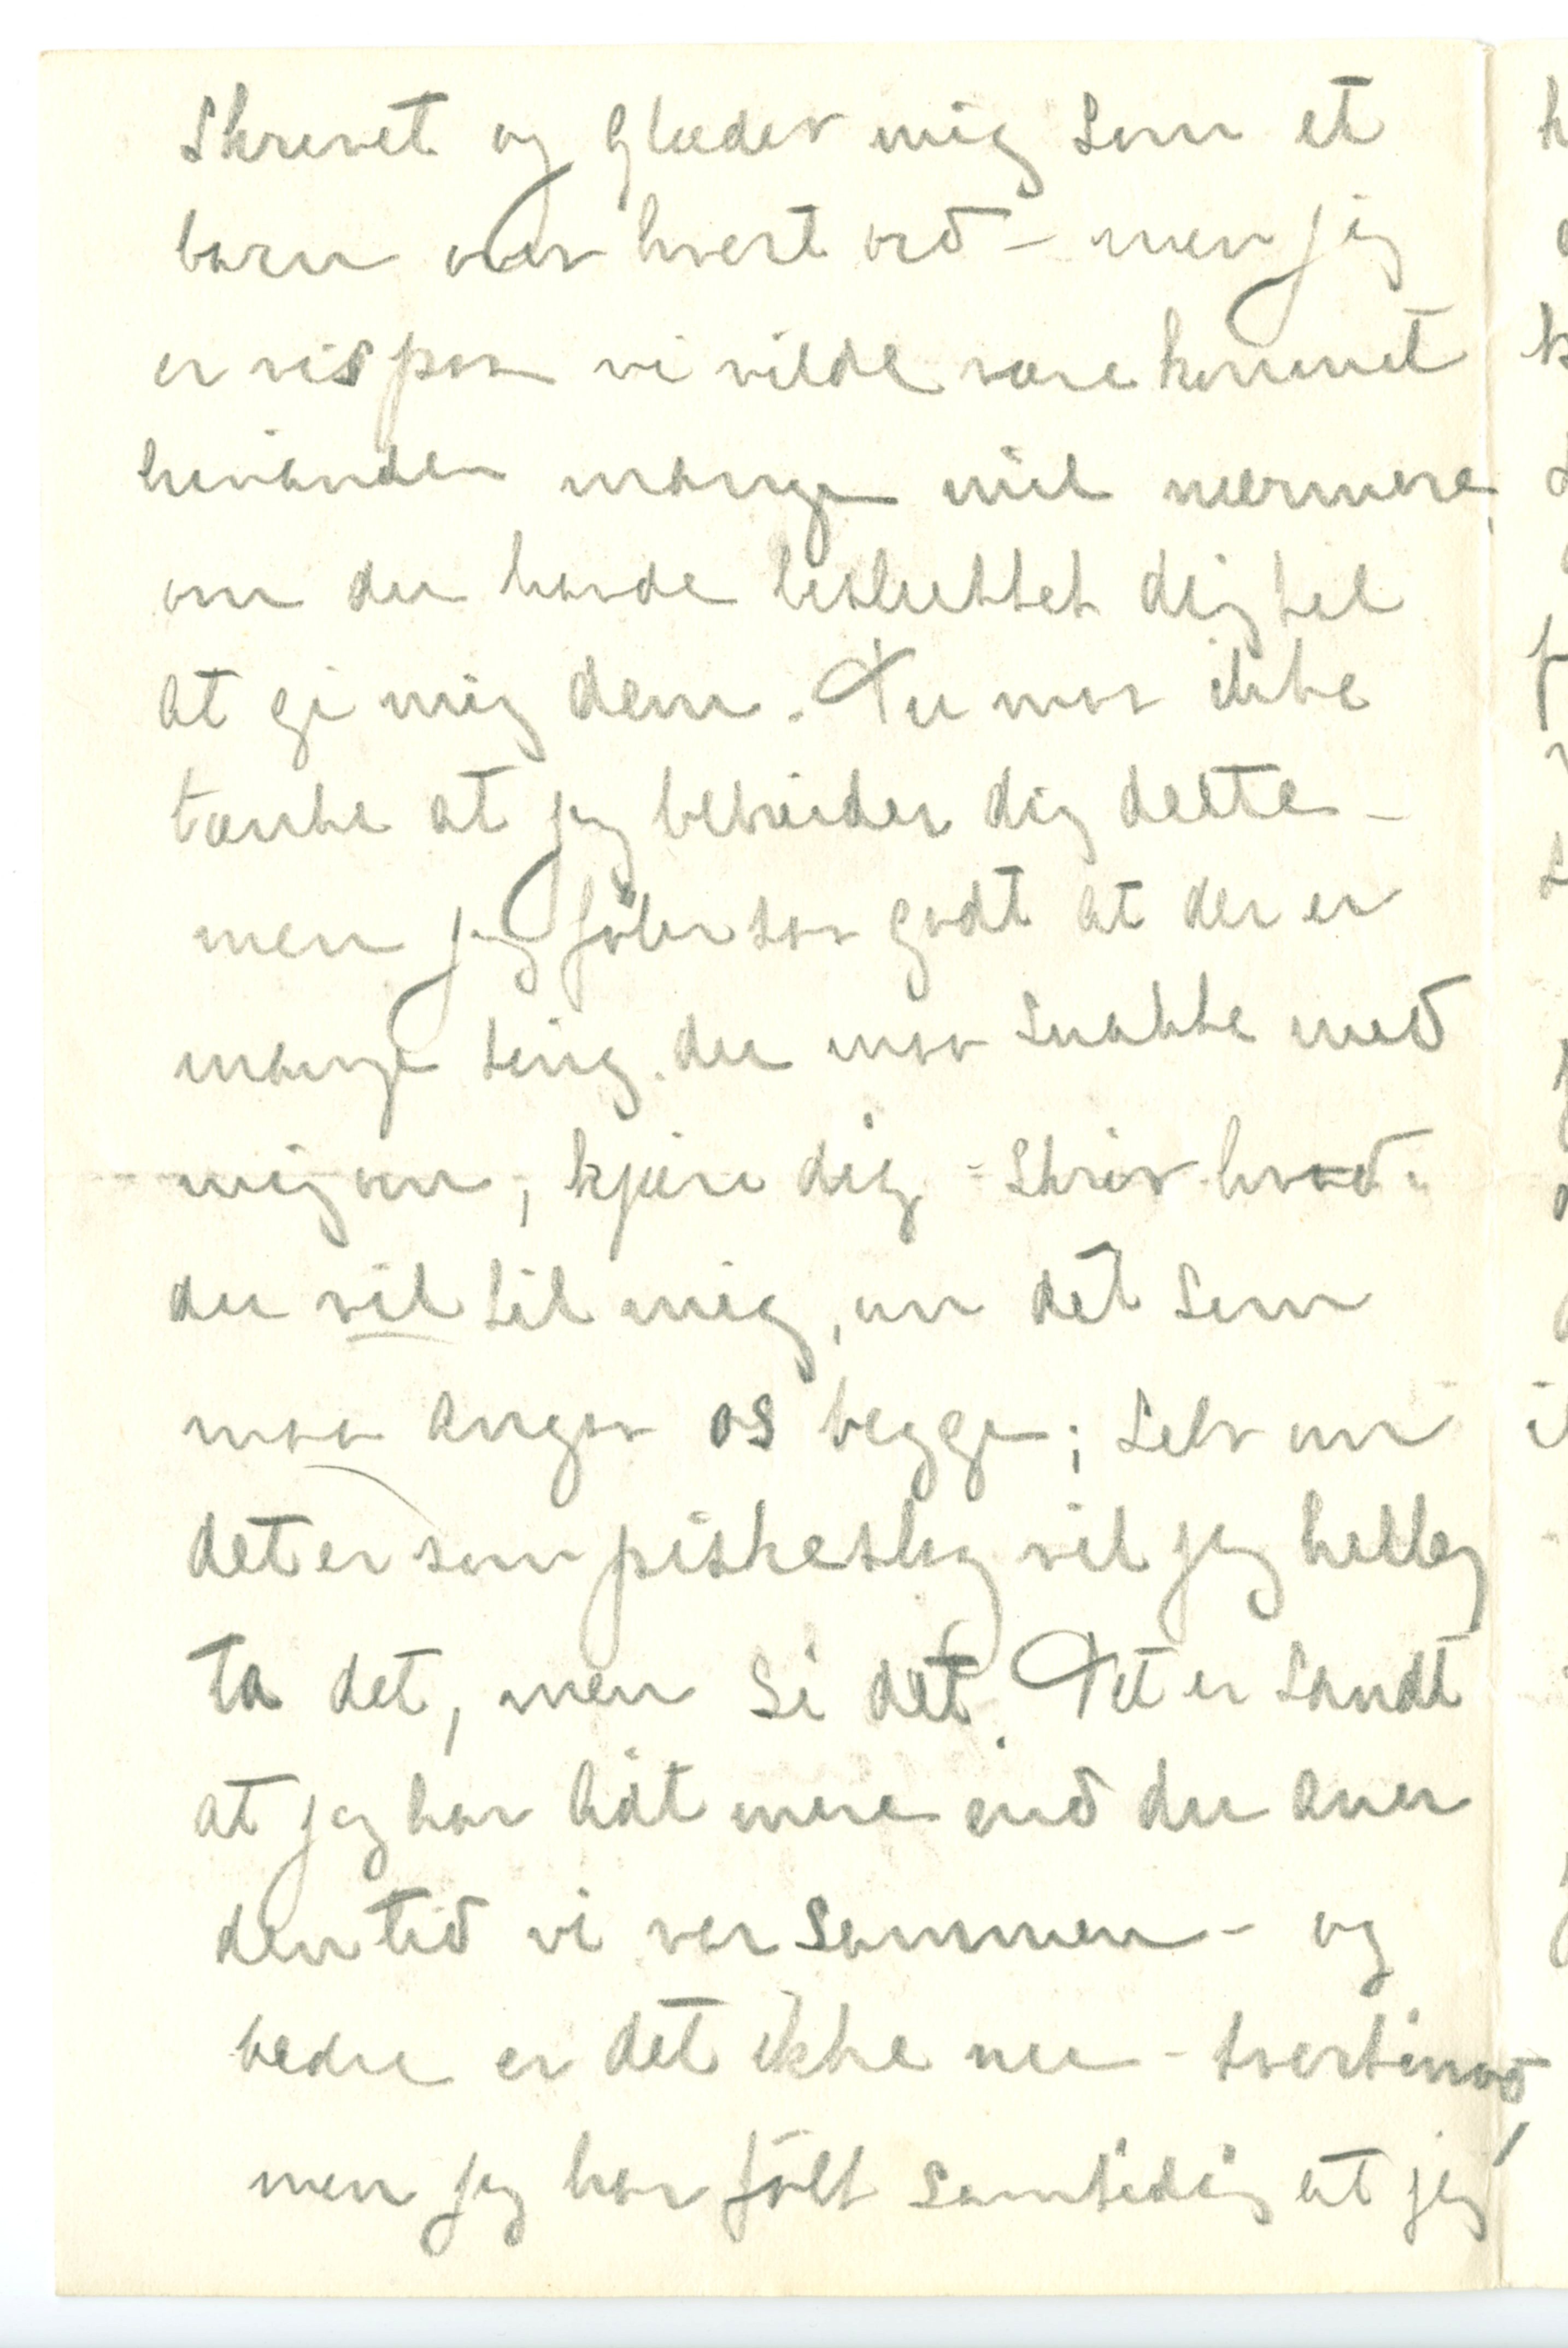 skrevet og glæder mig som et
barn over hvert ord – men jeg
er vis paa vi vilde være kommet
hinanden mange mil nærmere,
om du havde besluttet dig til
at gi mig dem. Du maa ikke
tænke at jeg bebreider dig dette –
men jeg föler saa godt at der er
mange ting du maa snakke med
mig om, kjære dig – skriv hvad
du vil til mig, om det som
maa angaa os begge; selv om
det er som piskeslag vil jeg heller
ta det, men si det. Det er sandt
at jeg har lidt mere end du aner
den tid vi var sammen – og
bedre er det ikke nu – tvertimod,
men jeg har fölt samtidig at jeg